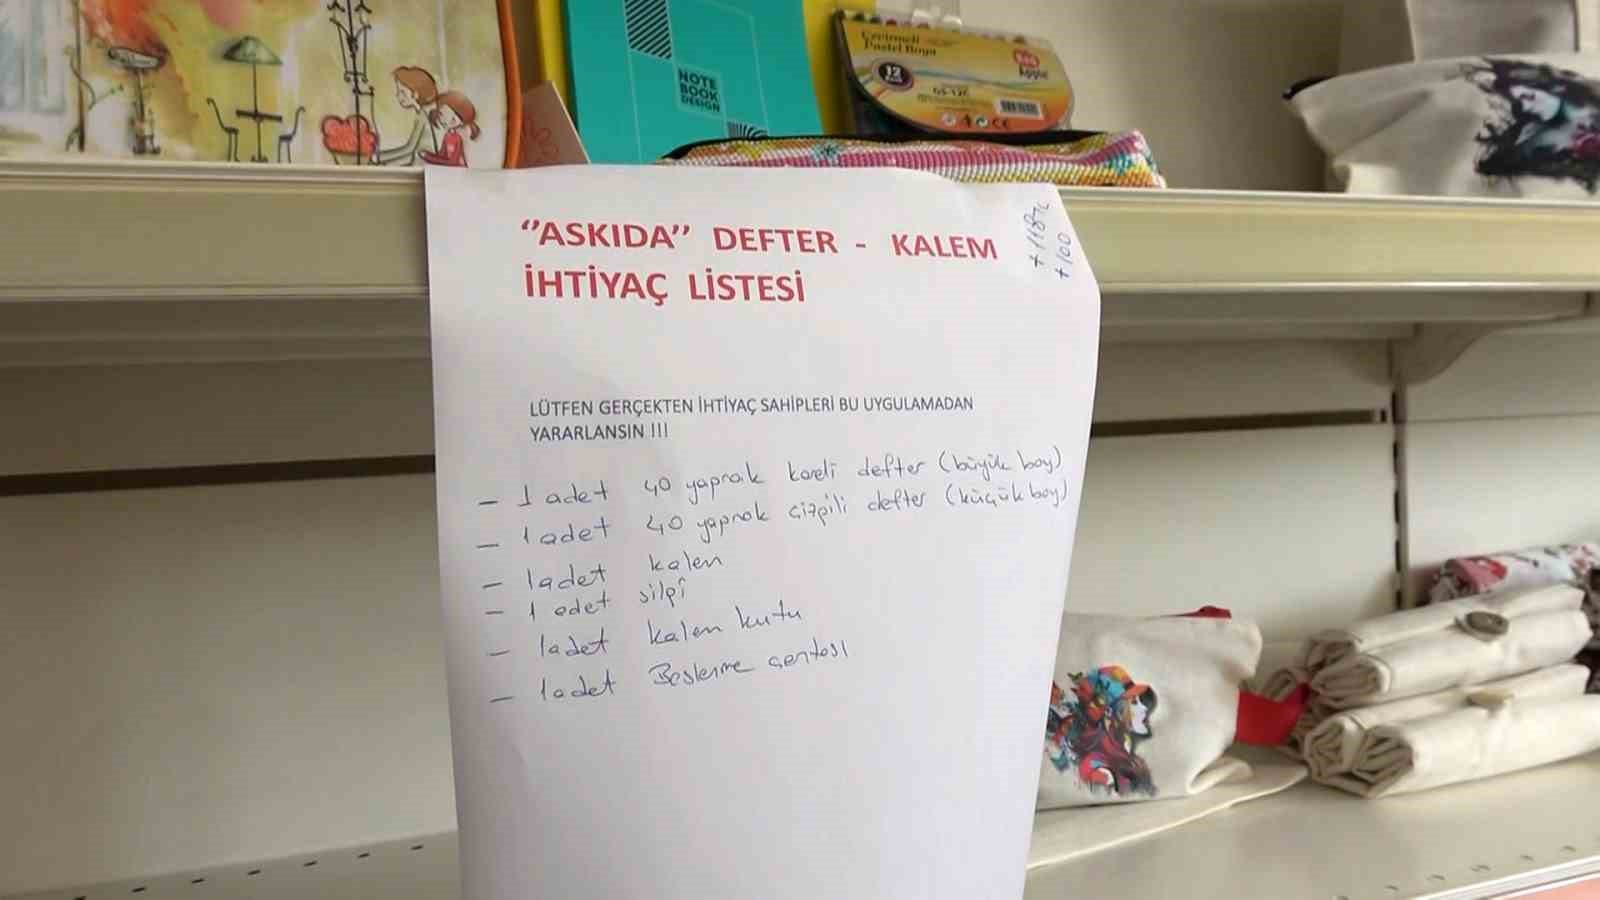 NOTE
BOOK
DESIGN
Çevirmeli
Pastel Boya
12
Red
Apple
GS-12C
CE
+118 TL
+100
"ASKIDA" DEFTER - KALEM
İHTİYAÇ LİSTESİ
LÜTFEN GERÇEKTEN İHTİYAÇ SAHİPLERİ BU UYGULAMADAN
YARARLANSIN !!!
- 1 adet 40 yaprak kareli defter (büyük boy)
- 1 adet 40 yaprak çizgili defter (küçük boy)
- 1 adet kalem
- 1 adet silgi
- 1 adet kalem kutu
- 1 adet Beslenme çantası